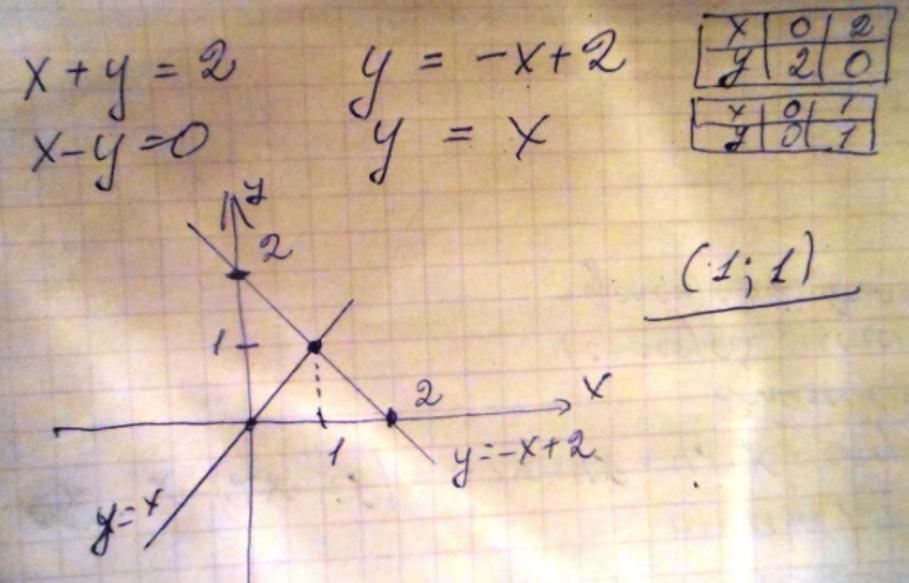 x + y = 2
x - y = 0
y = -x + 2
y = x
x 0 2
y 2 0
x 0 1
y 0 1
(1; 1)
y
2
1
2
x
1
y = -x + 2
y = x